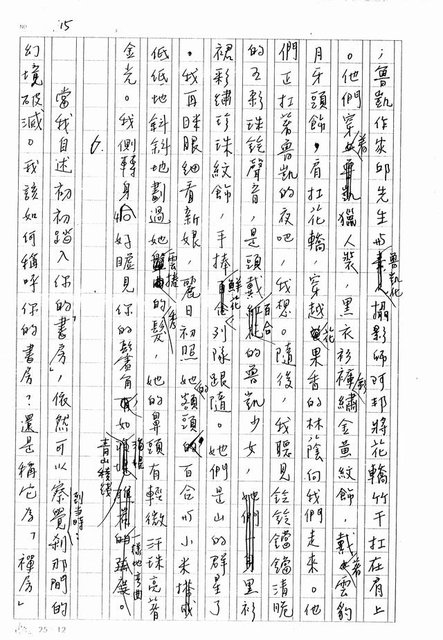 15
；魯凱作家邱先生與魯凱化攝影師阿邦將花轎竹干扛在肩上
。他們穿著獵人裝，黑衣衫褲繡金黃紋飾，戴著雲豹
月牙頭飾，肩扛花轎，穿越花果香的林蔭向我們走來。他
們正扛著魯凱的夜吧，我想。隨後，我聽見鈴鈴鐺鐺清脆
的五彩珠鈴聲音，是頭戴百合的魯凱少女，黑衫
裙彩繡珍珠紋飾，手捧鮮花列隊跟隨。她們是山的群星了
。我再眯眼細看新娘，麗日初照她的額頭百合於小米攢成
低低地斜斜地劃過她雲捲的髮，她的鼻頭有輕微汗珠亮著
金光。我側轉身恰好瞥見你的鬢角如青山稜線
6.
當我自述初初踏入你的「書房」，依然可以察覺到當時剎那間的
幻境破滅。我該如何稱呼你的書房？還是稱它為「禪房」
25 × 12